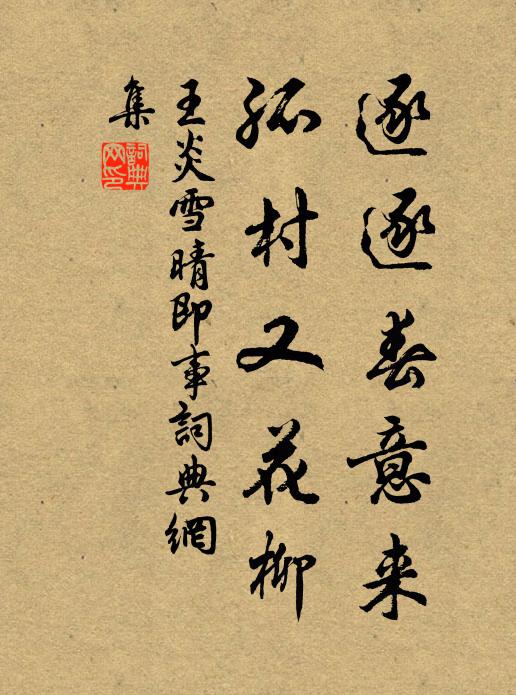 逐逐春意来
孤村又花柳
王炎雪晴即事詞典網
集
詞典
网印